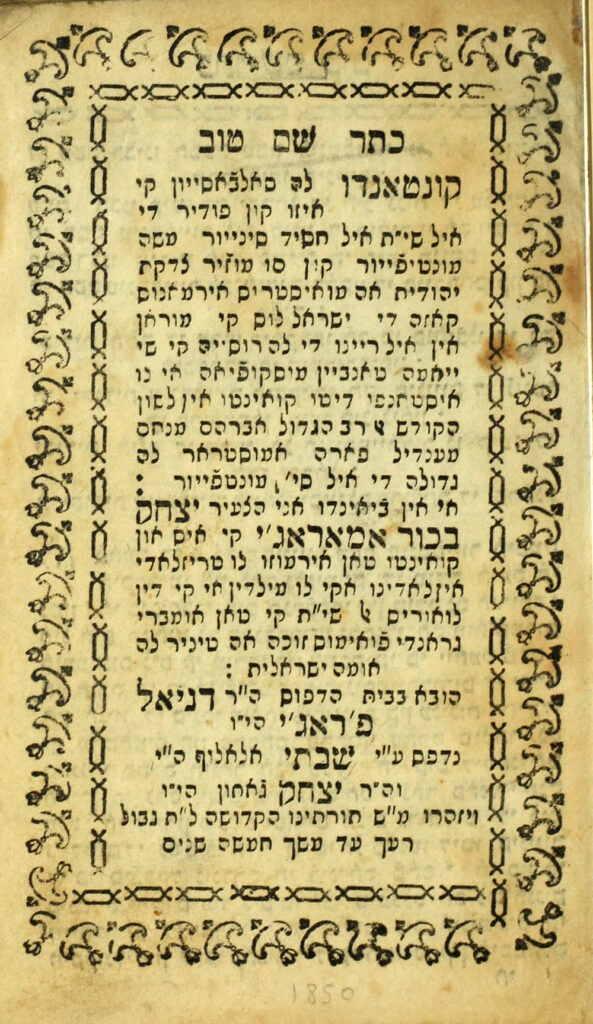 כתר שם טוב
קונטאנדו לה סאלבֿאסייון קי
איזו קון פודיר די
איל שי״ת איל חסיד סינייור משה
מונטיפֿייור קון סו מוזיר לדקת
יהודית אה מואיסטרוס אירמאנוס
קאזה די ישראל לוס קי מוראן
אין איל ריינו די לה רוסייה קי שי
ייאמה טאנביין מוסקופֿיאה אי נו
איסטחנפי דיטו קואינטו אין לשון
הקודש רב הגדול אברהם מנחם
מענדיל פארה אמוסטראר לה
גדולה די איל סי׳ מונטפֿייור :
אי אין בֿיאינדו אני הצעיר יצחק
בכור אמאראג׳י קי איס און
קואינטו טאן אירמוזו לו טריזלאדי
איזלאדינו אקי לו מילדין אי קי דין
לואוריס שי״ת קי טאן אומברי
גראנדי פֿואימוס זוכה אה טיניר לה
אומה ישראלית :
הובא בבית הדפוס ה״ר דניאל
פֿ׳ראג׳י הי״ו
נדפס ע״י שבתי אלאלוף ה״י
וה״ר יצחק גֿאחון הי״ו
ויזהרו מ״ש תורתינו הקדושה ל״ת גבול
רעך עד משך חמשה שנים
1850